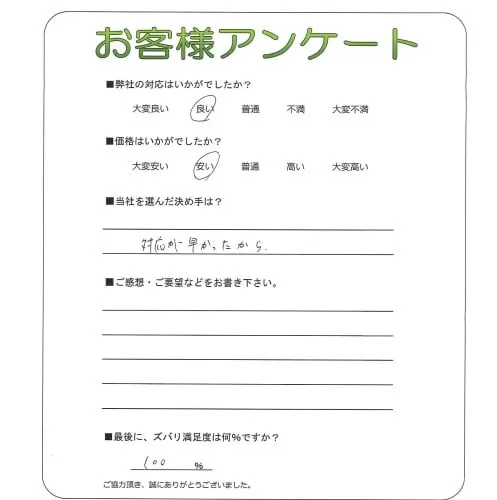 お客様アンケート
■弊社の対応はいかがでしたか？
大変良い 良い 普通 不満 大変不満
■価格はいかがでしたか？
大変安い 安い 普通 高い 大変高い
■当社を選んだ決め手は？
対応が早かったから.
■ご感想・ご要望などをお書き下さい。
■最後に、ズバリ満足度は何％ですか？
100 %
ご協力頂き、誠にありがとうございました。